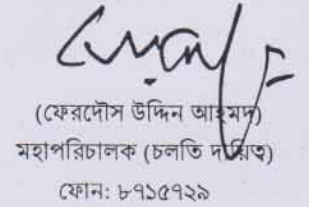 (ফেরদৌস উদ্দিন আহমদ)
মহাপরিচালক (চলতি দায়িত্ব)
ফোন: ৮৭১৫৭২৯